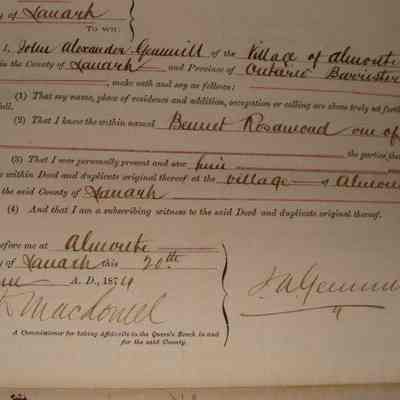 y of Lanark
To wit:
I, John Alexander Gemmill of the Village of Almonte
in the County of Lanark and Province of Ontario Barrister
, make oath and say as follows:
(1) That my name, place of residence and addition, occupation or calling are above truly set forth
(2) That I know the within named Bennet Rosamond one of
the parties
(3) That I was personally present and saw him
within Deed and duplicate original thereof at the Village of Almonte
the said County of Lanark
(4) And that I am a subscribing witness to the said Deed and duplicate original thereof.
before me at Almonte
y of Lanark this 20th
A. D., 1874
J A Gemmill
A Commissioner for taking Affidavits in the Queen's Bench in and
for the said County.